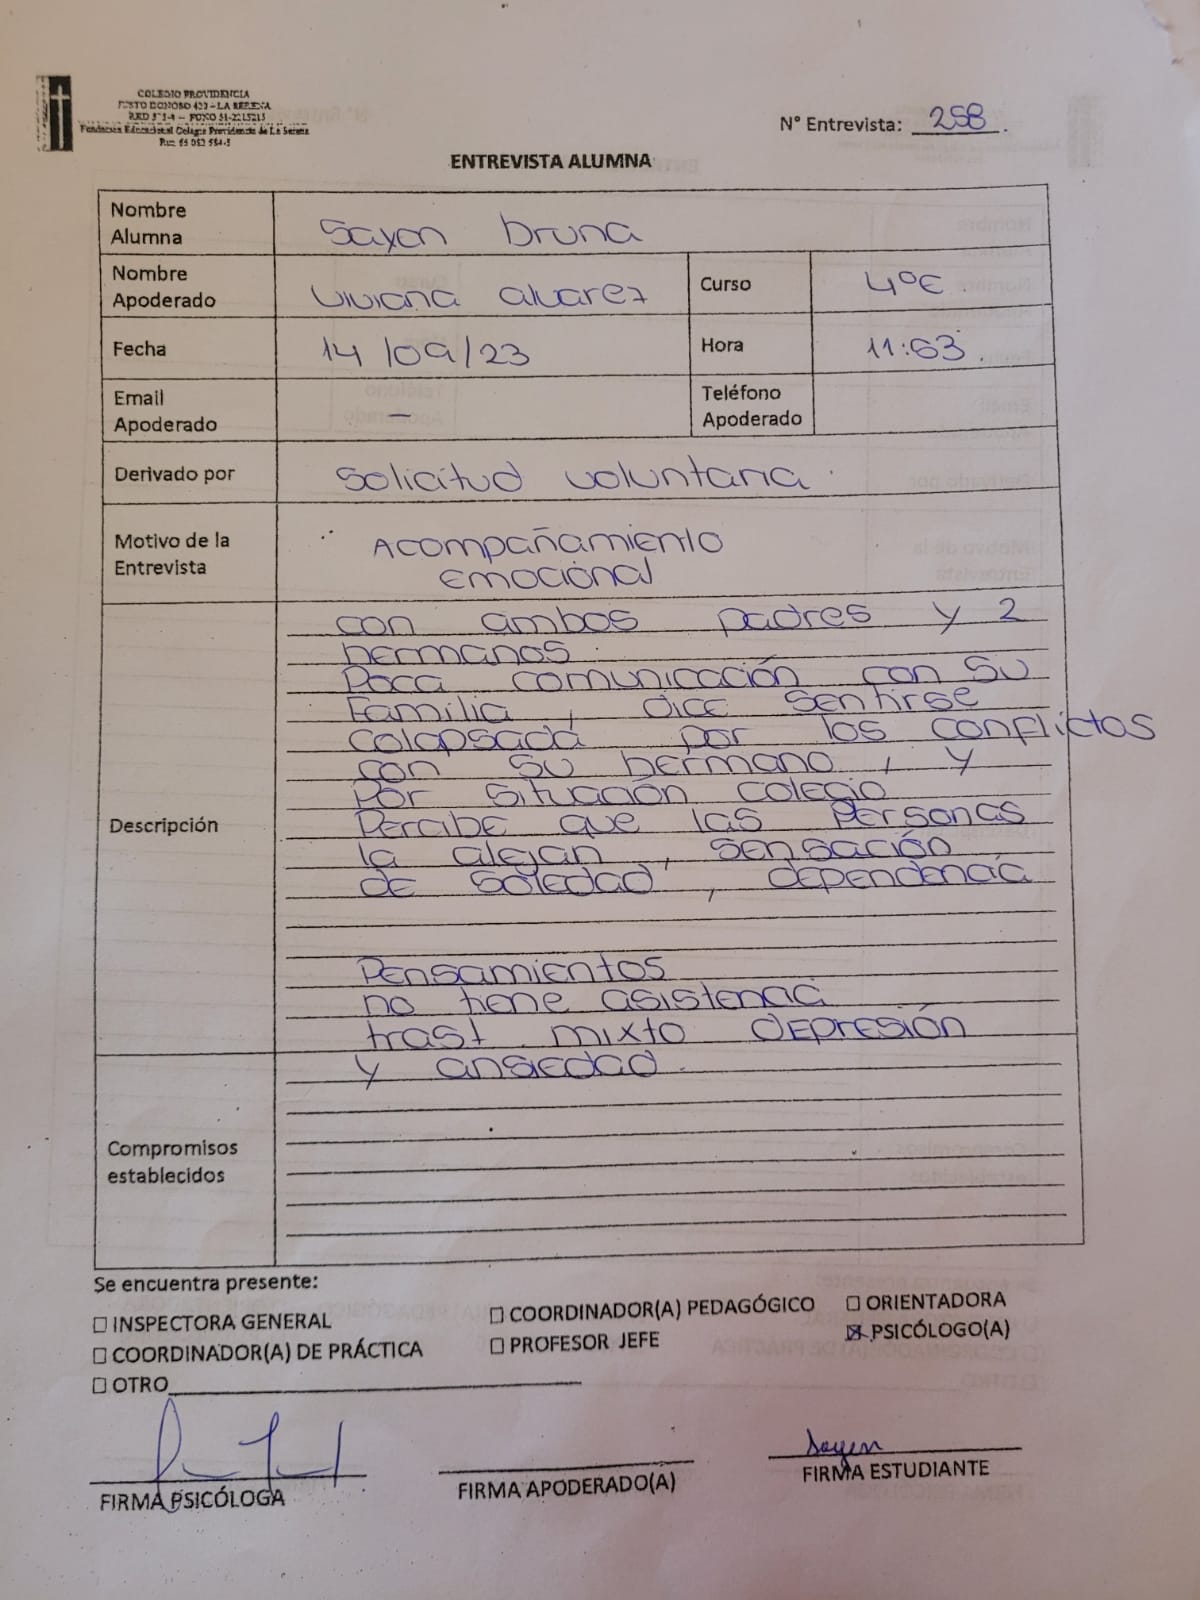 COLEGIO PROVIDENCIA
JUSTO DONOSO 420 - LA SERENA
Fundación Educacional Colegio Providencia de La Serena
N° Entrevista: 258.
ENTREVISTA ALUMNA
Nombre Alumna
Sayen bruna
Nombre Apoderado
Viviana alvarez
Curso
4°E
Fecha
14/09/23
Hora
11:53.
Email Apoderado
—
Teléfono Apoderado
Derivado por
Solicitud voluntaria.
Motivo de la Entrevista
Acompañamiento
Emocional
Descripción
con ambos padres y 2
hermanos.
Poca comunicación con su
Familia, dice sentirse
colapsada por los conflictos
con su hermano, y
por situación colegio
Percibe que las personas
la alejan, sensación
de soledad, dependencia
Pensamientos
no tiene asistenaci
trast. mixto depresión
y ansiedad.
Compromisos establecidos
Se encuentra presente:
☐ INSPECTORA GENERAL
☐ COORDINADOR(A) PEDAGÓGICO
☐ ORIENTADORA
☐ COORDINADOR(A) DE PRÁCTICA
☐ PROFESOR JEFE
☒ PSICÓLOGO(A)
☐ OTRO
Sayen
FIRMA PSICÓLOGA
FIRMA APODERADO(A)
FIRMA ESTUDIANTE